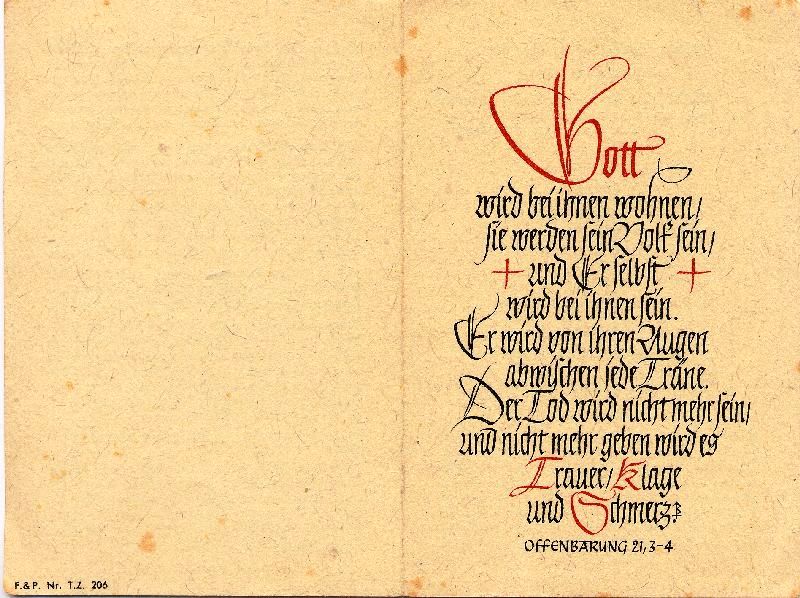 Gott
wird bei ihnen wohnen/
sie werden sein Volk sein/
+ und Er selbst +
wird bei ihnen sein.
Er wird von ihren Augen
abwischen jede Träne.
Der Tod wird nicht mehr sein/
und nicht mehr geben wird es
Trauer/Klage
und Schmerz.
OFFENBARUNG 21,3-4
F.&P. Nr. T.Z. 206